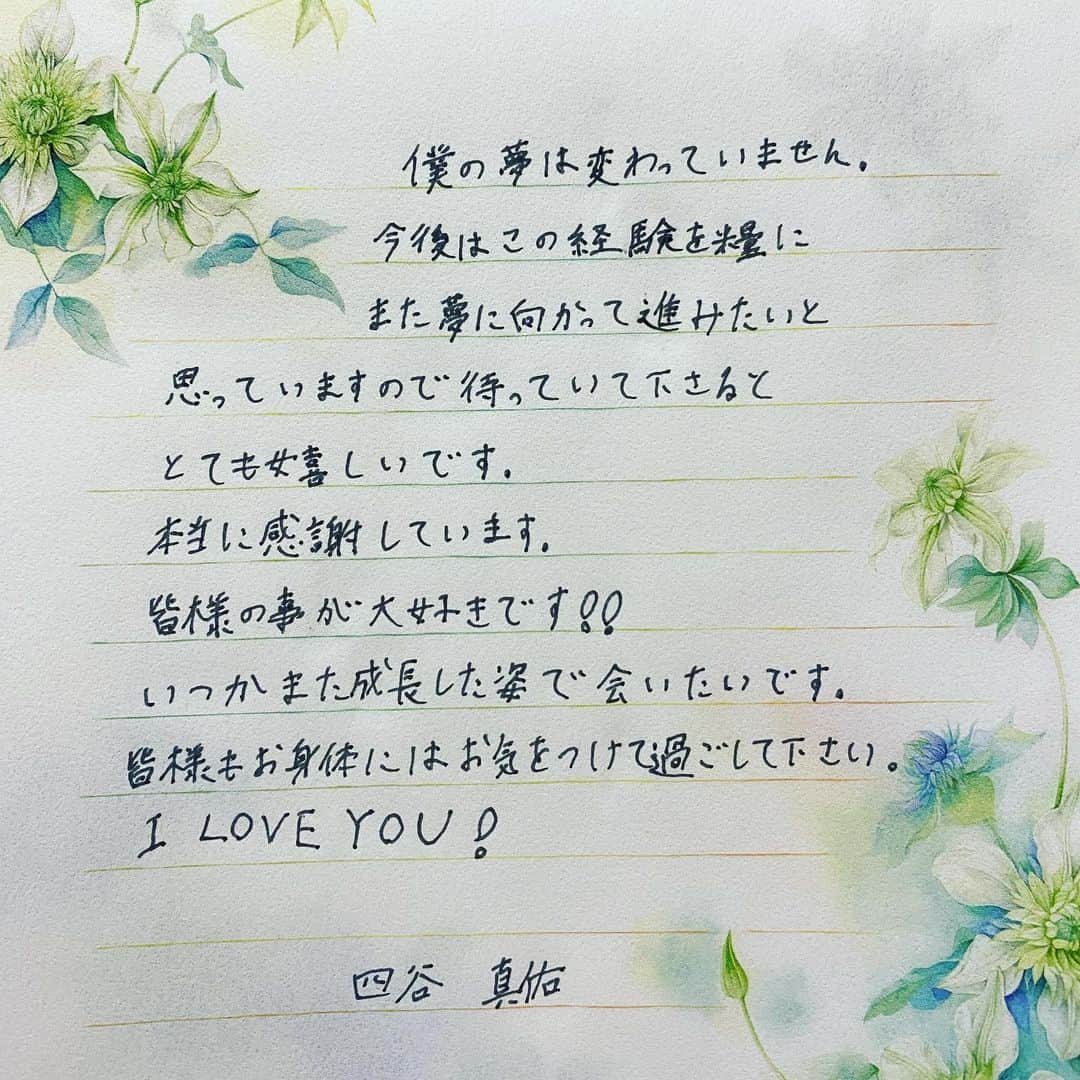 僕の夢は変わっていません。
今後はこの経験を糧に
また夢に向かって進みたいと
思っていますので待っていて下さると
とても嬉しいです。
本当に感謝しています。
皆様の事が大好きです!!
いつかまた成長した姿で会いたいです。
皆様もお身体にはお気をつけて過ごして下さい。
I LOVE YOU!
四谷 真佑